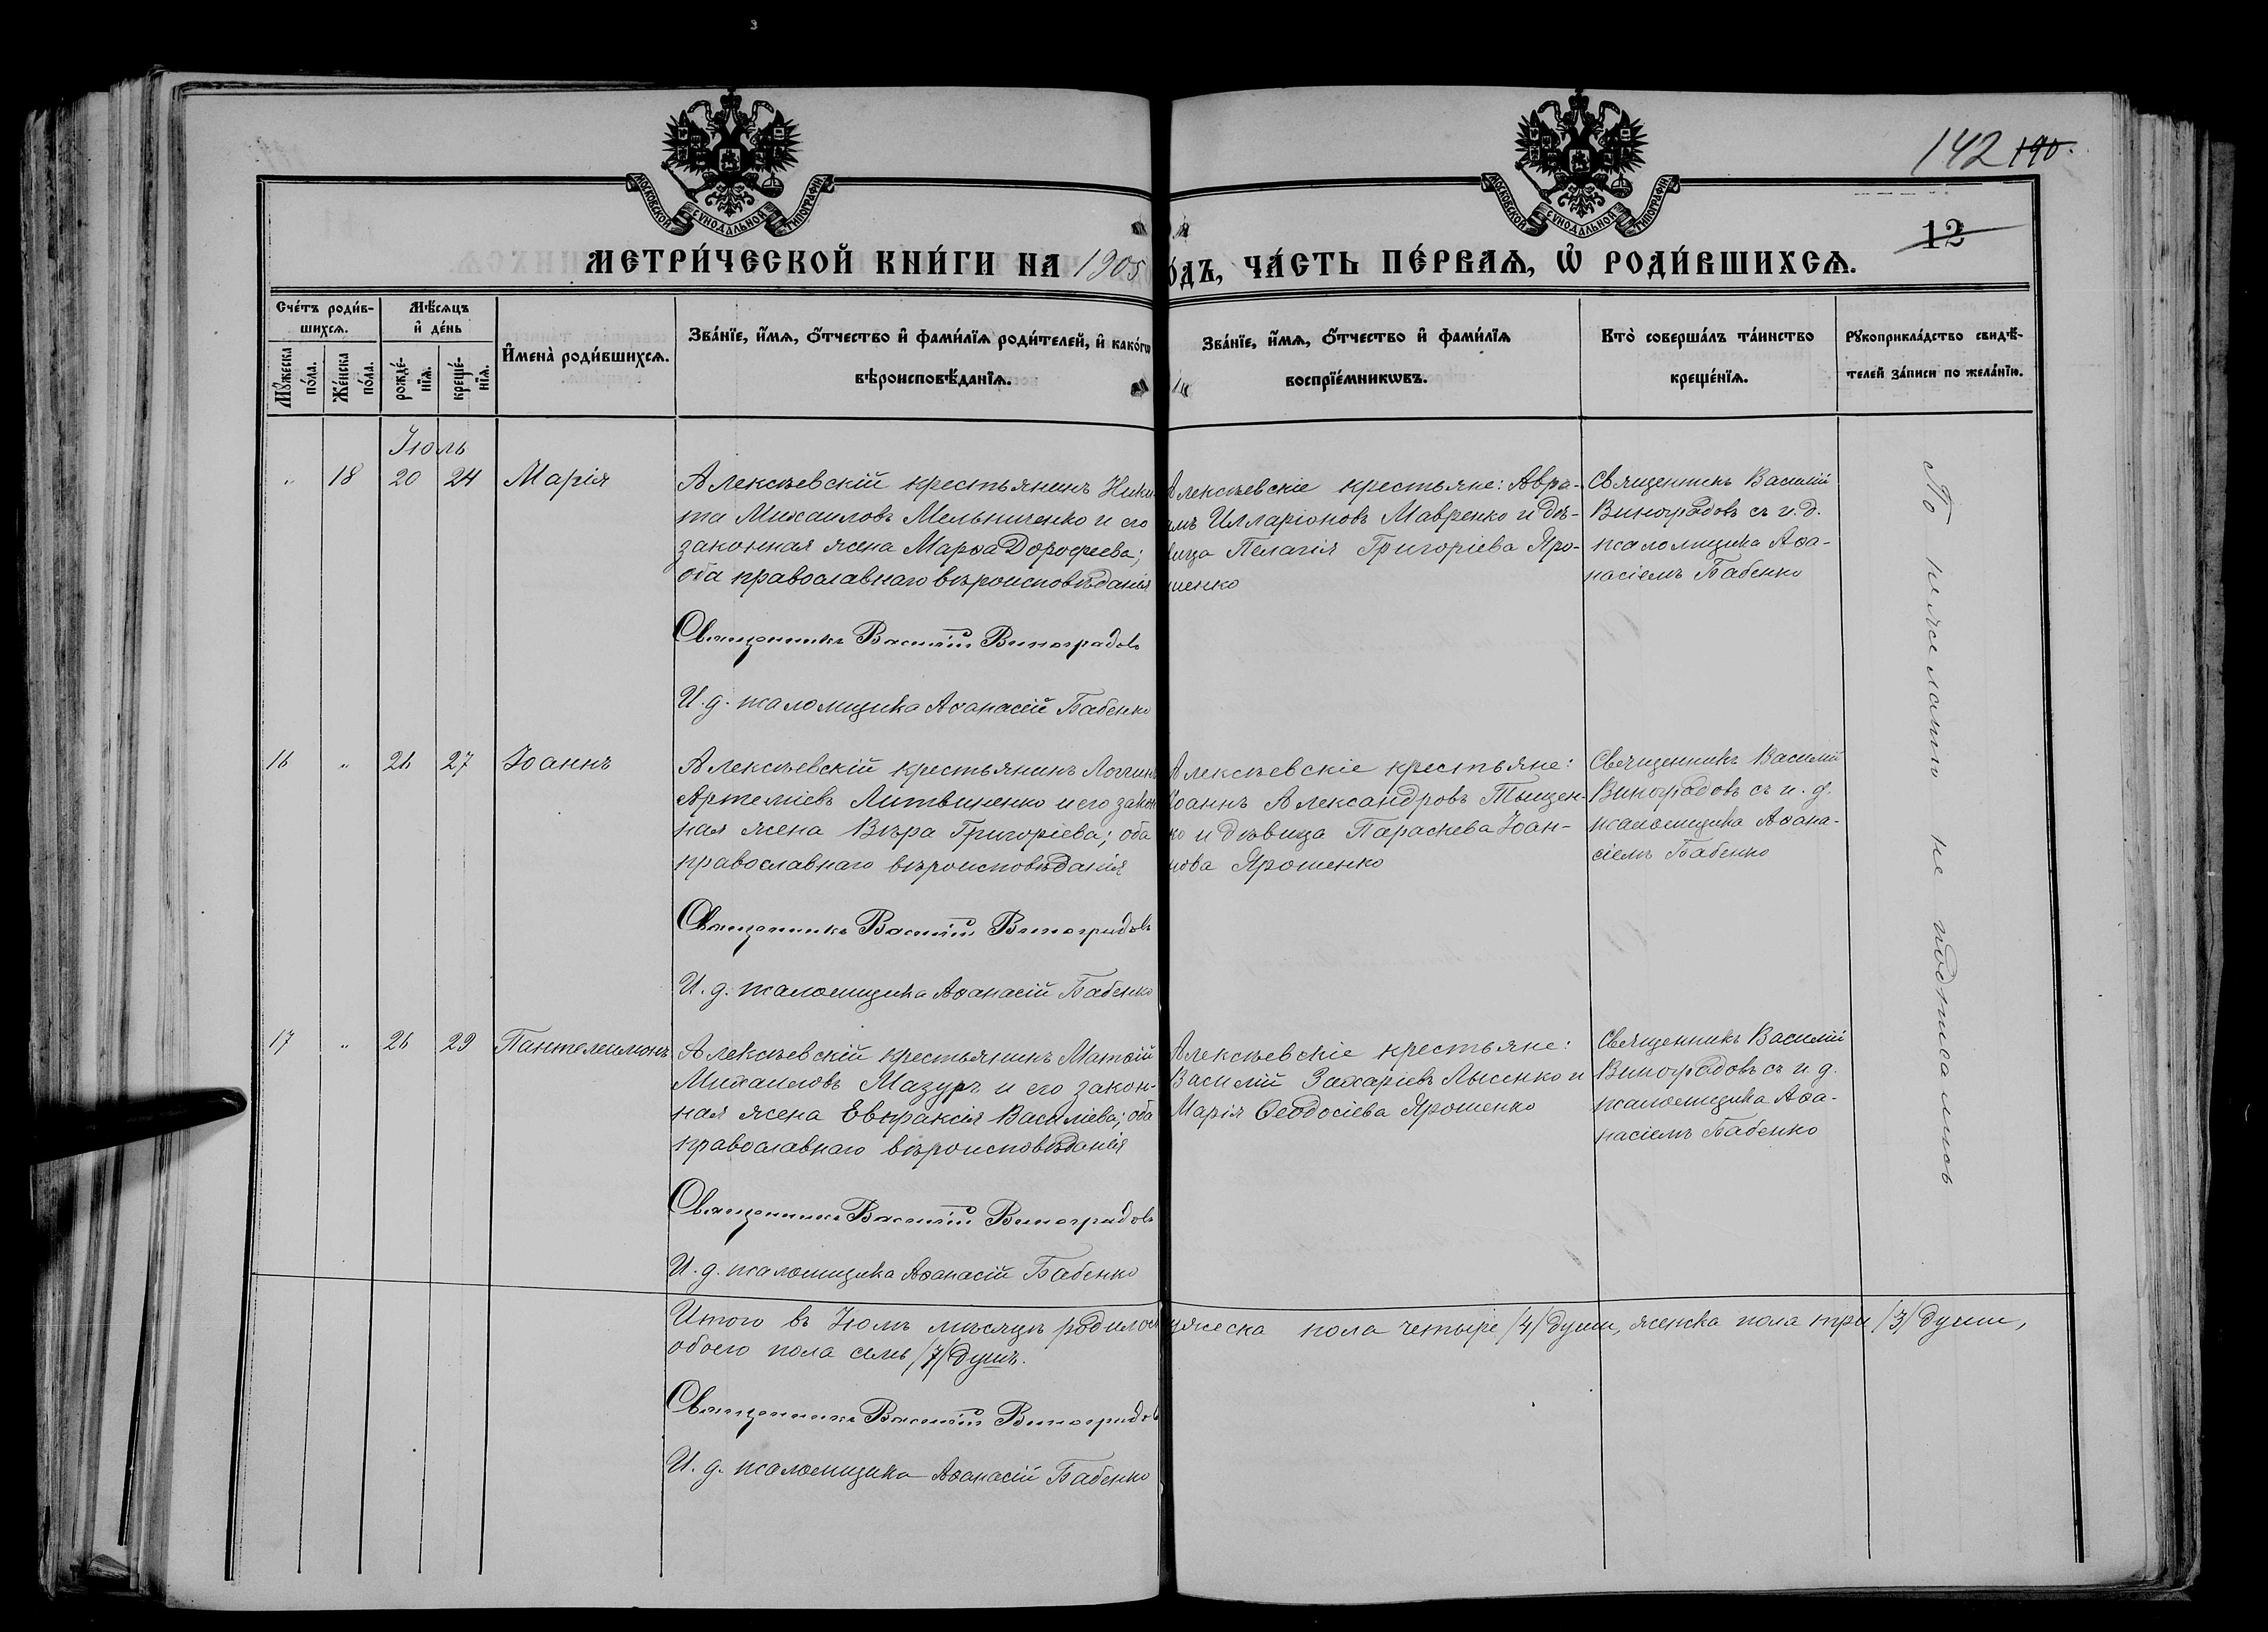 142 190.
12
МОСКОВСКОЙ СѴНОДАЛЬНОЙ ТИПОГРАФІИ
МОСКОВСКОЙ СѴНОДАЛЬНОЙ ТИПОГРАФІИ
МЕТРИ́ЧЕСКОЙ КНИ́ГИ НА 1905
О́ДЪ, ЧА́СТЬ ПЕ́РВАѦ, Ѡ҆ РОДИ́ВШИХСѦ.
Сче́тъ роди́в-
шихсѧ.
Мꙋ́жеска по́ла.
Же́нска по́ла.
Мѣ́сѧцъ
и҆ де́нь
рожде́-нїѧ.
креще́-нїѧ.
И҆мена̀ роди́вшихсѧ.
Зва́нїе, и҆́мѧ, ѻ҆́тчество и҆ фами́лїѧ роди́телей, и҆ како́гѡ
вѣроисповѣ́данїѧ.
Зва́нїе, и҆́мѧ, ѻ҆́тчество и҆ фами́лїѧ
воспрїе́мникѡвъ.
Кто̀ соверша́лъ та́инство
креще́нїѧ.
Рꙋкоприкла́дство свидѣ́-
телей за́писи по жела́нїю.
Іюль
" 18 20 24 Марія
Алексѣевскій крестьянинъ Ники-
та Михаиловъ Мельниченко и его
законная жена Марѳа Дорофеева;
оба православнаго вѣроисповѣданія
Священникъ Василій Виноградовъ
И. д. псаломщика Аѳанасій Бабенко
Алексѣевскіе крестьяне: Авра-
амъ Илларіоновъ Мавренко и дѣ-
вица Пелагія Григоріева Яро-
шенко
Священникъ Василій
Виноградовъ съ и. д.
псаломщика Аѳа-
насіемъ Бабенко
16 " 26 27 Іоаннъ
Алексѣевскій крестьянинъ Логгинъ
Артеміевъ Литвиненко и его закон
ная жена Вѣра Григоріева; оба
православнаго вѣроисповѣданія
Священникъ Василій Виноградовъ
И. д. псаломщика Аѳанасій Бабенко
Алексѣевскіе крестьяне:
Іоаннъ Александровъ Тыщен-
ко и дѣвица Параскева Іоан-
нова Ярошенко
Священникъ Василій
Виноградовъ съ и. д.
псаломщика Аѳана-
сіемъ Бабенко
17 " 26 29 Пантелеимонъ
Алексѣевскій крестьянинъ Матѳій
Михаиловъ Мазуръ и его закон-
ная жена Евпраксія Василіева; оба
православнаго вѣроисповѣданія
Священникъ Василій Виноградовъ
И. д. псаломщика Аѳанасій Бабенко
Алексѣевскіе крестьяне:
Василій Захаріевъ Лысенко и
Марія Ѳеодосіева Ярошенко
Священникъ Василій
Виноградовъ съ и. д.
псаломщика Аѳа-
насіемъ Бабенко
По нежеланію не подписались
Итого въ Іюлѣ мѣсяцѣ родилось мужеска пола четыре /4/ души, женска пола три /3/ души,
обоего пола семь /7/ душъ.
Священникъ Василій Виноградовъ
И. д. псаломщика Аѳанасій Бабенко